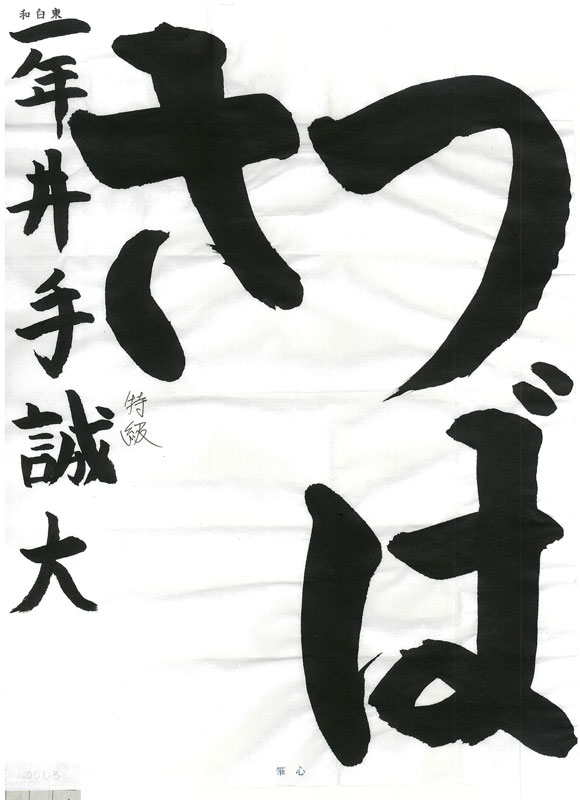 和白東
つば
さ
特級
一年井手誠大
筆心
のりしろ